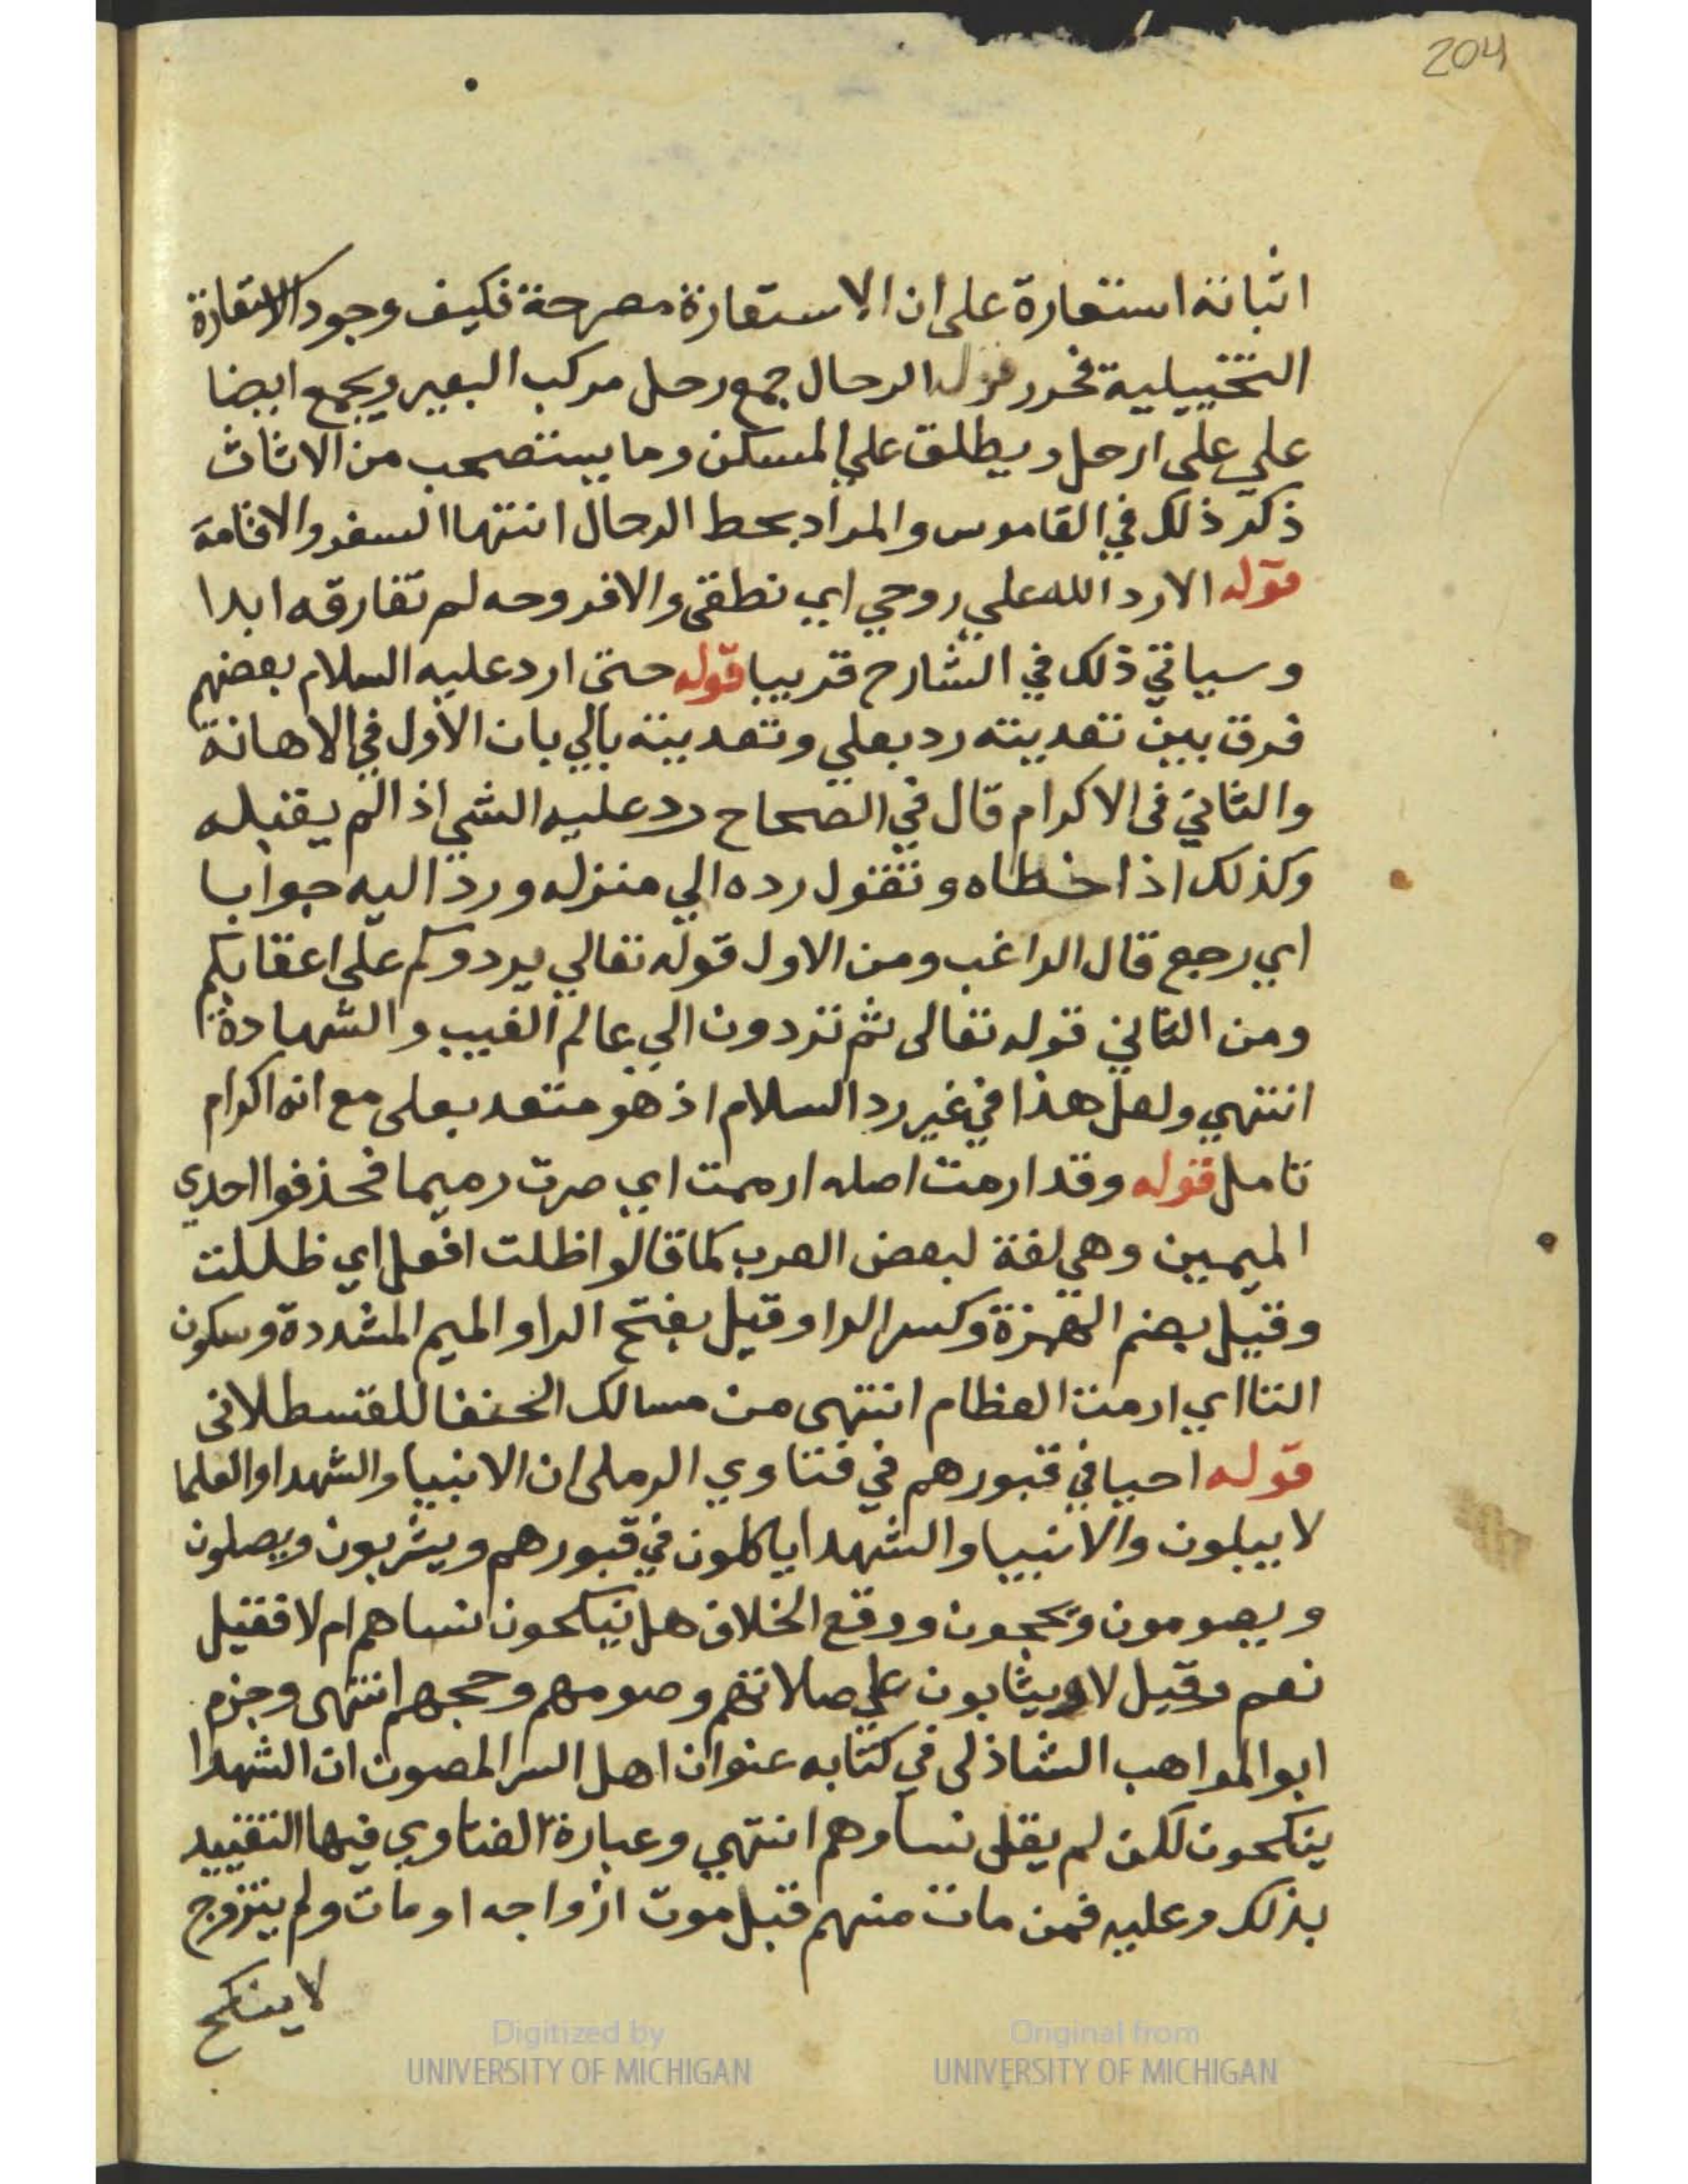 204
اثباته استعارة على ان الاستعارة مصرحة فكيف وجود الاستعارة
التخييلية فحرر قوله الرحال جمع رحل مركب البعير ويجمع ايضا
علي على ارحل ويطلق علي المسكن وما يستصحب من الاثاث
ذكر ذلك في القاموس والمراد بحط الرحال انتها السفر والاقامة
قوله الارد الله علي روحي اي نطقى والافروحه لم تفارقه ابدا
وسياتي ذلك في الشارح قريبا قوله حتى ارد عليه السلام بعضهم
فرق بين تعديته رد بعلي وتعديته بالي بان الاول في الاهانة
والثاني فى الاكرام قال في الصحاح رد عليه الشي اذا لم يقبله
وكذلك اذا خطاه وتقول رده الي منزله ورد اليه جوابا
اي رجع قال الراغب ومن الاول قوله تعالي يردوكم على اعقابكم
ومن الثاني قوله تعالى ثم تردون الي عالم الغيب والشهادة
انتهي ولعل هذا في غير رد السلام اذ هو متعد بعلى مع انه اكرام
تامل قوله وقد ارمت اصله ارممت اي صرت رميما فحذفوا احدي
الميمين وهي لغة لبعض العرب كما قالوا ظلت افعل اي ظللت
وقيل بضم الهمزة وكسر الرا وقيل بفتح الرا والميم المشددة وسكون
التا اي ارمت العظام انتهى من مسالك الحنفا للقسطلانى
قوله احيا في قبورهم في فتاوي الرملى ان الانبيا والشهدا والعلما
لا يبلون والانبيا والشهدا ياكلون في قبورهم ويشربون ويصلون
ويصومون ويحجون ووقع الخلاف هل ينكحون نساهم ام لا فقيل
نعم وقيل لا ويثابون علي صلاتهم وصومهم وحجهم انتهى وجزم
ابو المواهب الشاذلى في كتابه عنوان اهل السر المصون ان الشهدا
ينكحون لكن لم يقل نساوهم انتهي وعبارة الفتاوي فيها التقييد
بذلك وعليه فمن مات منهم قبل موت ازواجه او مات ولم يتزوج
لا يناكح
Digitized by
UNIVERSITY OF MICHIGAN
Original from
UNIVERSITY OF MICHIGAN